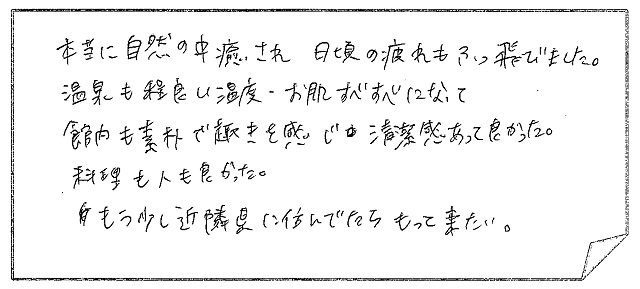 本当に自然の中癒され 日頃の疲れもふっ飛びました。
温泉も程良い温度・お肌すべすべになって
館内も素朴で趣きを感じ 清潔感あって良かった。
料理も人も良かった。
もう少し近隣県に住んでたらもって来たい。